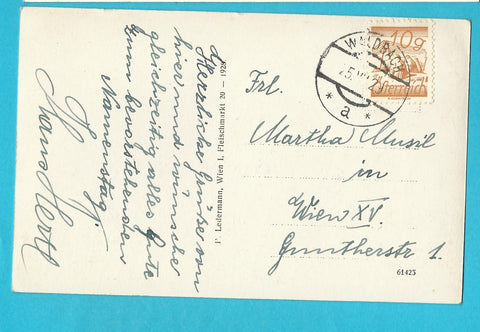 Herzliche Grüße von
hier und wünsche
gleichzeitig alles Gute
zum bevorstehenden
Namenstag.
Hans Hertl
P. Ledermann, Wien I, Fleischmarkt 20 — 1928
10g
Österreich
WALDBACH
* a *
Frl.
Martha Musil
in
Wien XV.
Guntherstr 1.
61425